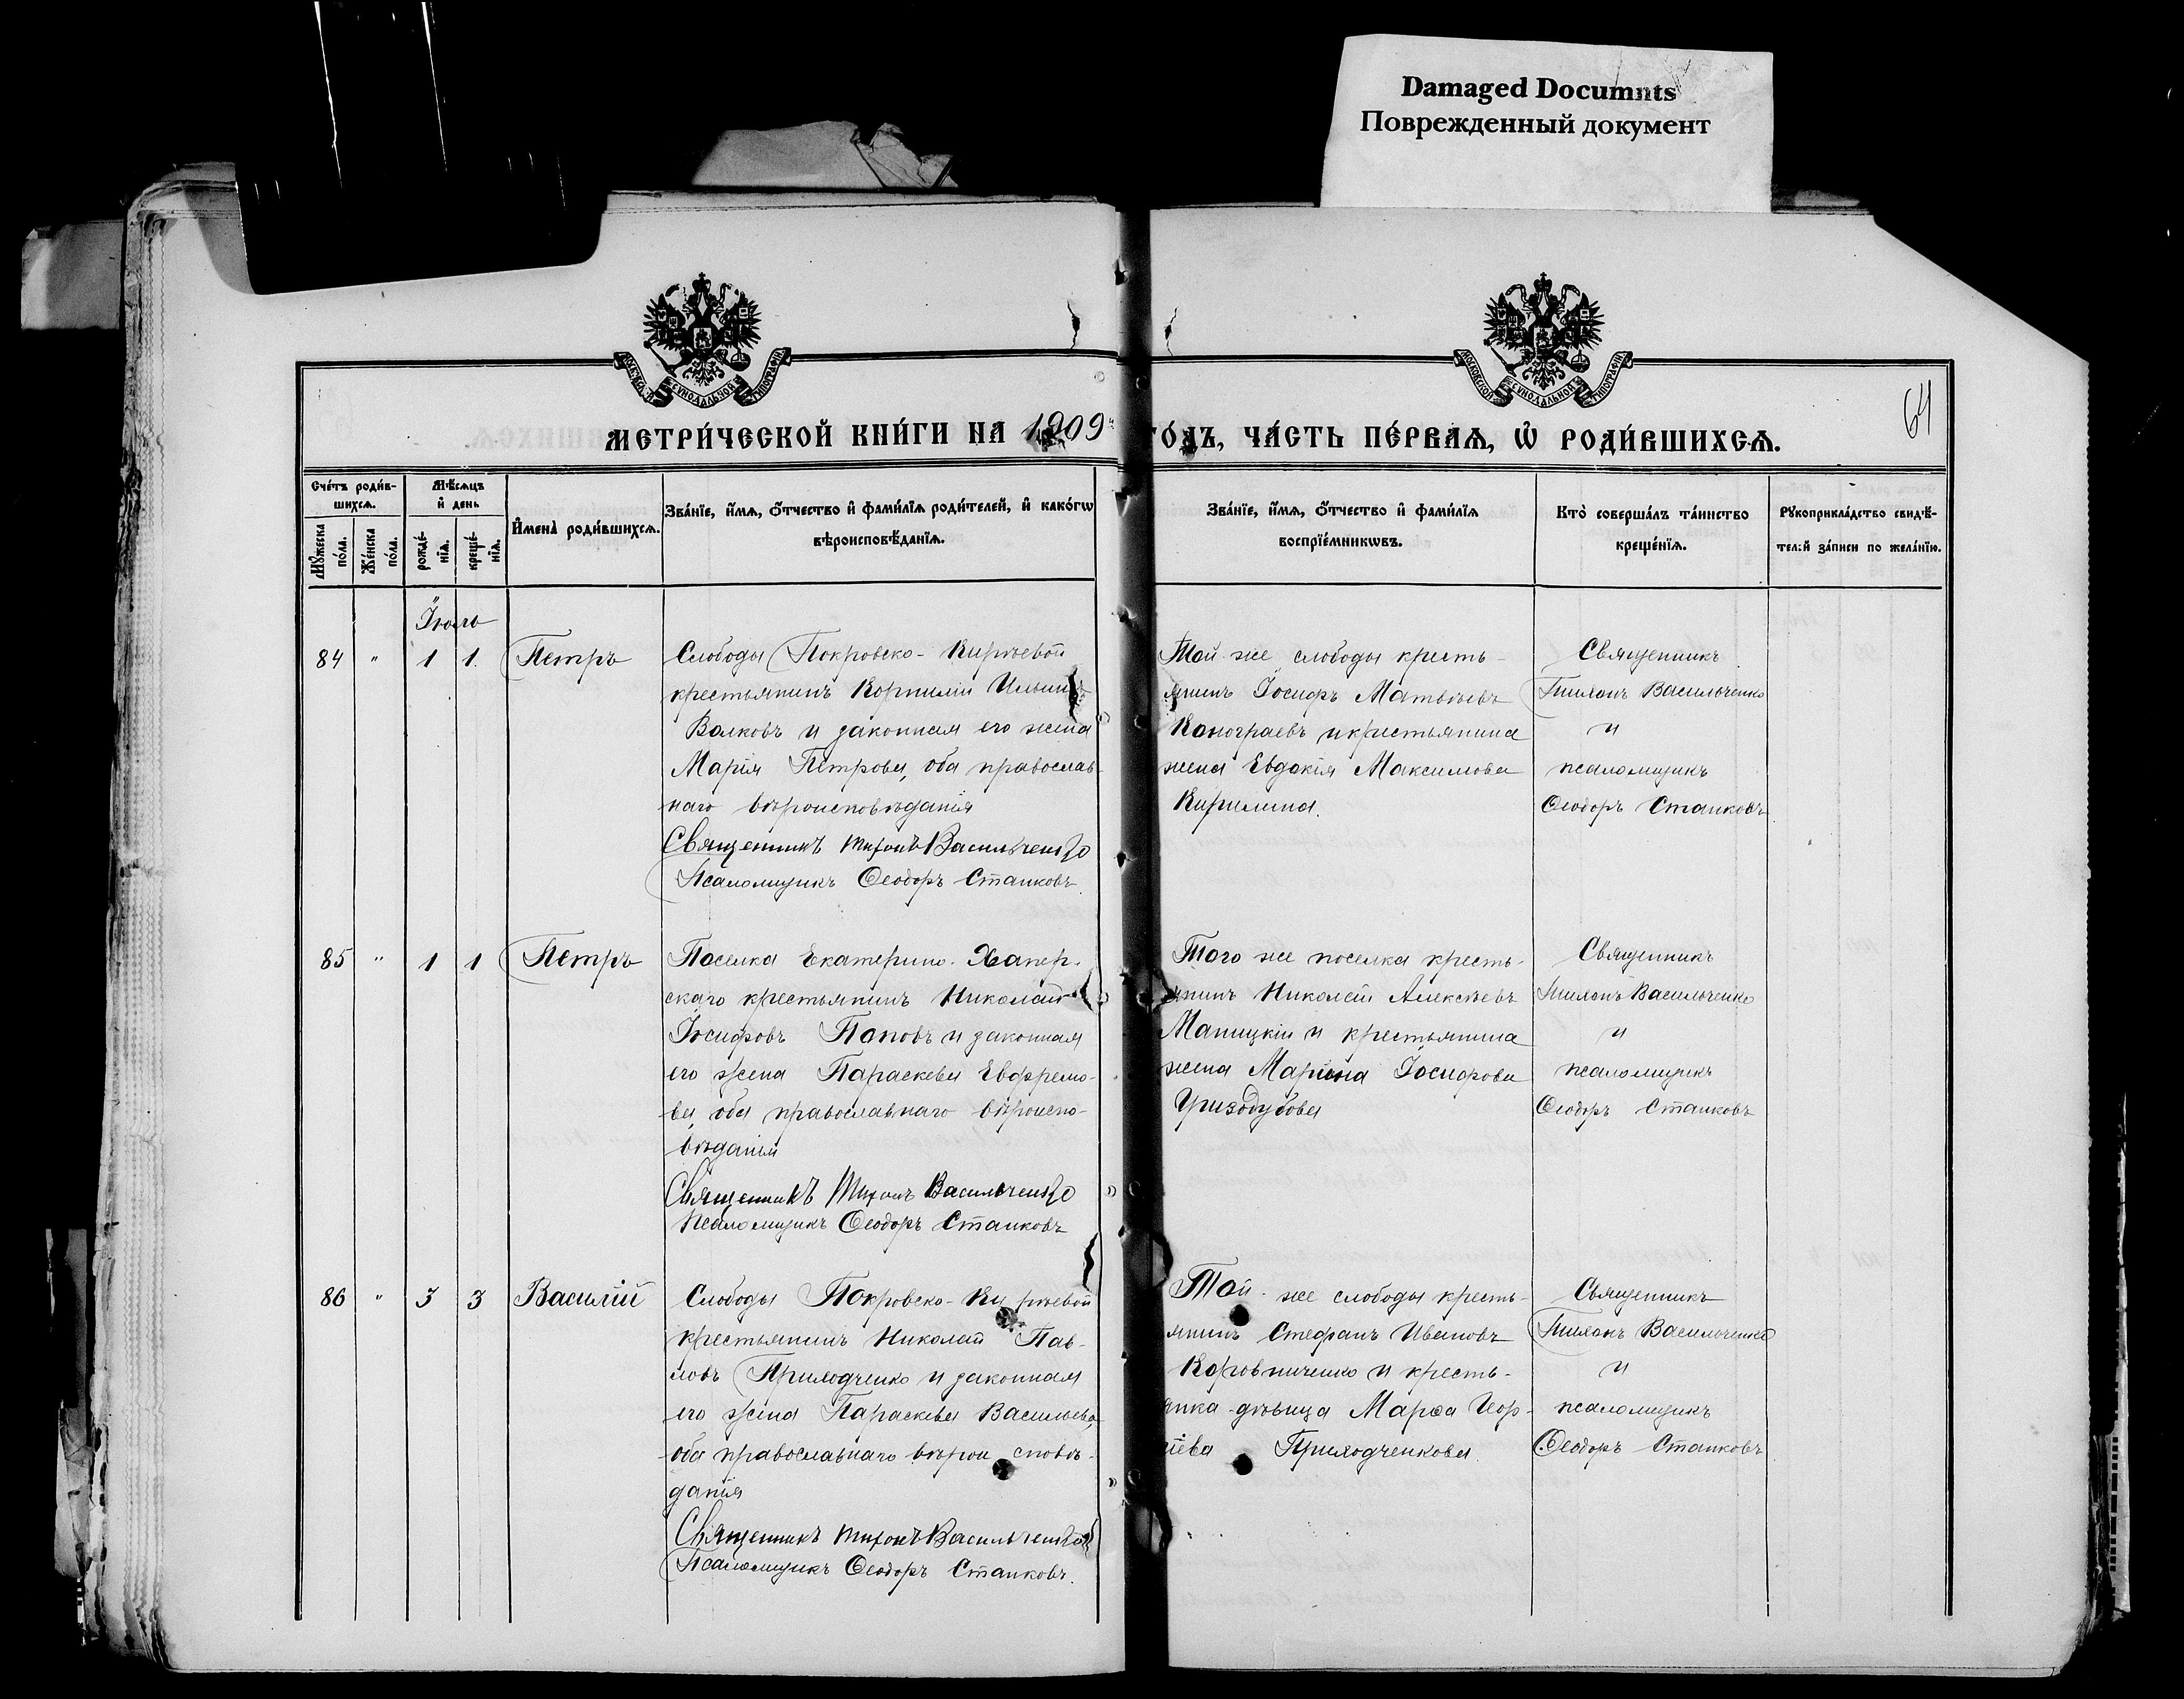 Damaged Documnts
Поврежденный документ
64
МЕТРИ́ЧЕСКОЙ КНИ́ГИ НА 1909 ГО́ДЪ, ЧА́СТЬ ПЕ́РВАѦ, Ѡ҆ РОДИ́ВШИХСѦ.
Сче́тъ роди́в-
шихсѧ.
Мꙋ́жеска
по́ла.
Же́нска
по́ла.
Мѣ́сѧцъ
и҆ день
рожде́-
нїѧ.
креще́-
нїѧ.
И҆мена̀ роди́вшихсѧ.
Зва́нїе, и҆́мѧ, ѻ҆́тчество и҆ фами́лїѧ роди́телей, и҆ како́гѡ
вѣроисповѣ́данїѧ.
Зва́нїе, и҆́мѧ, ѻ҆́тчество и҆ фами́лїѧ
воспрїе́мникѡвъ.
Кто̀ соверша́лъ та́инство
креще́нїѧ.
Рꙋкоприкла́дство свидѣ́-
тел:й за́писи по жела́нїю.
Іюль
84 " 1 1 Петръ
Слободы Покровско-Кирѣевой
крестьянинъ Корнилій Ильинъ
Волковъ и законная его жена
Марія Петрова, оба православ-
наго вѣроисповѣданія
Священникъ Тихонъ Васильченко
Псаломщикъ Ѳеодоръ Станковъ.
Той же слободы кресть-
янинъ Іосифъ Матвѣевъ
Конограевъ и крестьянина
жена Евдокія Максимова
Кирилина.
Священникъ
Тихонъ Васильченко
и
псаломщикъ
Ѳеодоръ Станковъ
85 " 1 1 Петръ
Поселка Екатерино-Хапер-
скаго крестьянинъ Николай
Іосифовъ Поповъ и законная
его жена Параскева Евфремо-
ва, оба православнаго вѣроиспо-
вѣданія
Священникъ Тихонъ Васильченко
Псаломщикъ Ѳеодоръ Станковъ
Того же поселка кресть-
янинъ Николай Алексѣевъ
Маницкій и крестьянина
жена Марина Іосифова
Гризодубова
Священникъ
Тихонъ Васильченко
и
псаломщикъ
Ѳеодоръ Станковъ
86 " 3 3 Василій
Слободы Покровско-Кирѣевой
крестьянинъ Николай Пав-
ловъ Приходченко и законная
его жена Параскева Васильева,
оба православнаго вѣроисповѣ-
данія
Священникъ Тихонъ Васильченко
Псаломщикъ Ѳеодоръ Станковъ.
Той-же слободы кресть-
янинъ Стефанъ Ивановъ
Коровниченко и кресть-
янка-дѣвица Марѳа Геор-
гіева Приходченкова.
Священникъ
Тихонъ Васильченко
и
псаломщикъ
Ѳеодоръ Станковъ